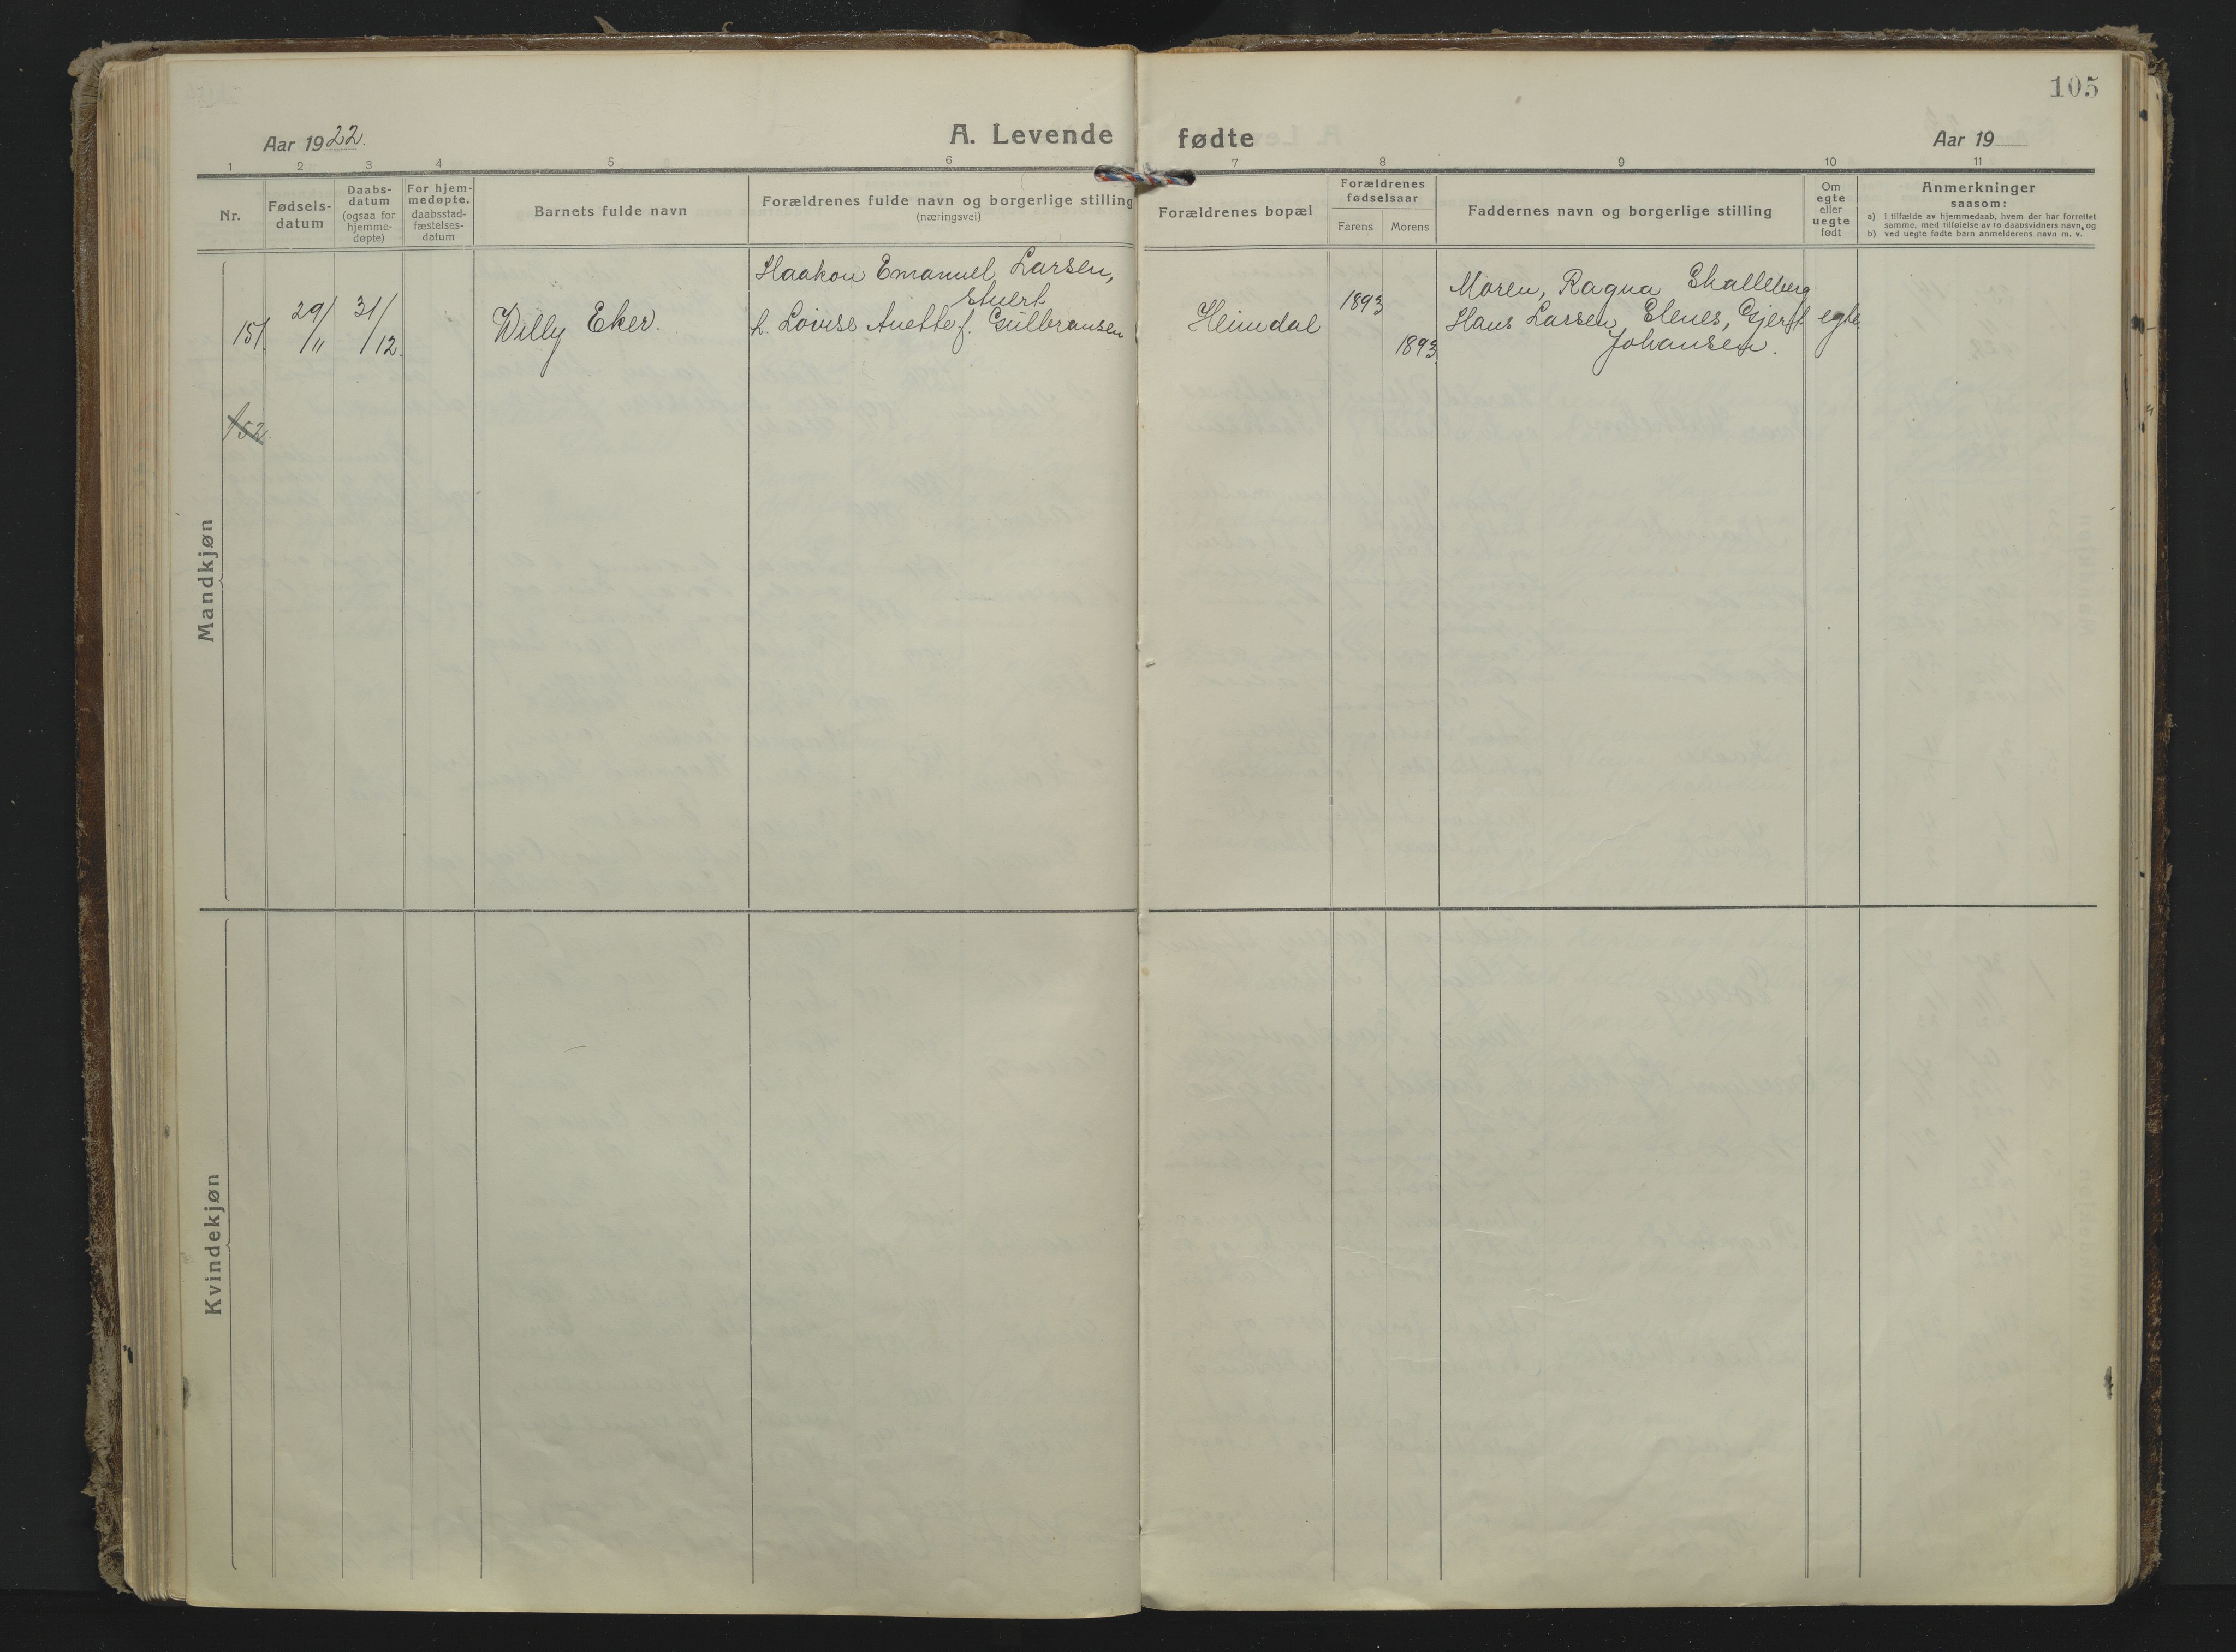 105
Aar 1922.
A. Levende fødte
Aar 19
1 2 3 4 5 6 7 8 9 10 11
Nr.
Fødsels-
datum
Daabs-
datum
(ogsaa for
hjemme-
døpte)
For hjem-
medøpte.
daabsstad-
fæstelses-
datum
Barnets fulde navn
Forældrenes fulde navn og borgerlige stilling
(næringsvei)
Forældrenes bopæl
Forældrenes
fødselsaar
Farens Morens
Faddernes navn og borgerlige stilling
Om
egte
eller
uegte
født
Anmerkninger
saasom:
a) i tilfælde av hjemmedaab, hvem der har forrettet
samme, med tilføielse av to daabsvidners navn, og
b) ved uegte fødte barn anmelderens navn m. v.
Mandkjøn
151.
29/11
31/12.
Willy Eker.
Haakon Emanuel Larsen,
h. Lovise Anette f. Gulbransen
Heimdal
1893
1893
Moren, Ragna Skalleberg
Hans Larsen, Elenes, Gjerft
Johansen.
egte
152
Kvindekjøn